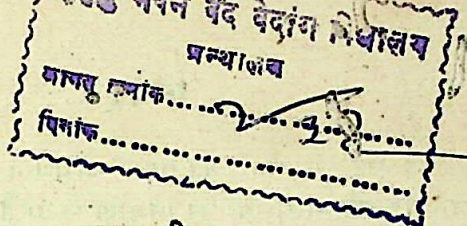 भवन वेद वेदांग विद्यालय
ग्रन्थालय
आगत क्रमांक......
दिनांक......